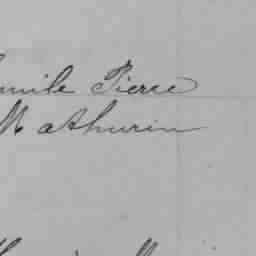 Emile Pierre
Mathurin